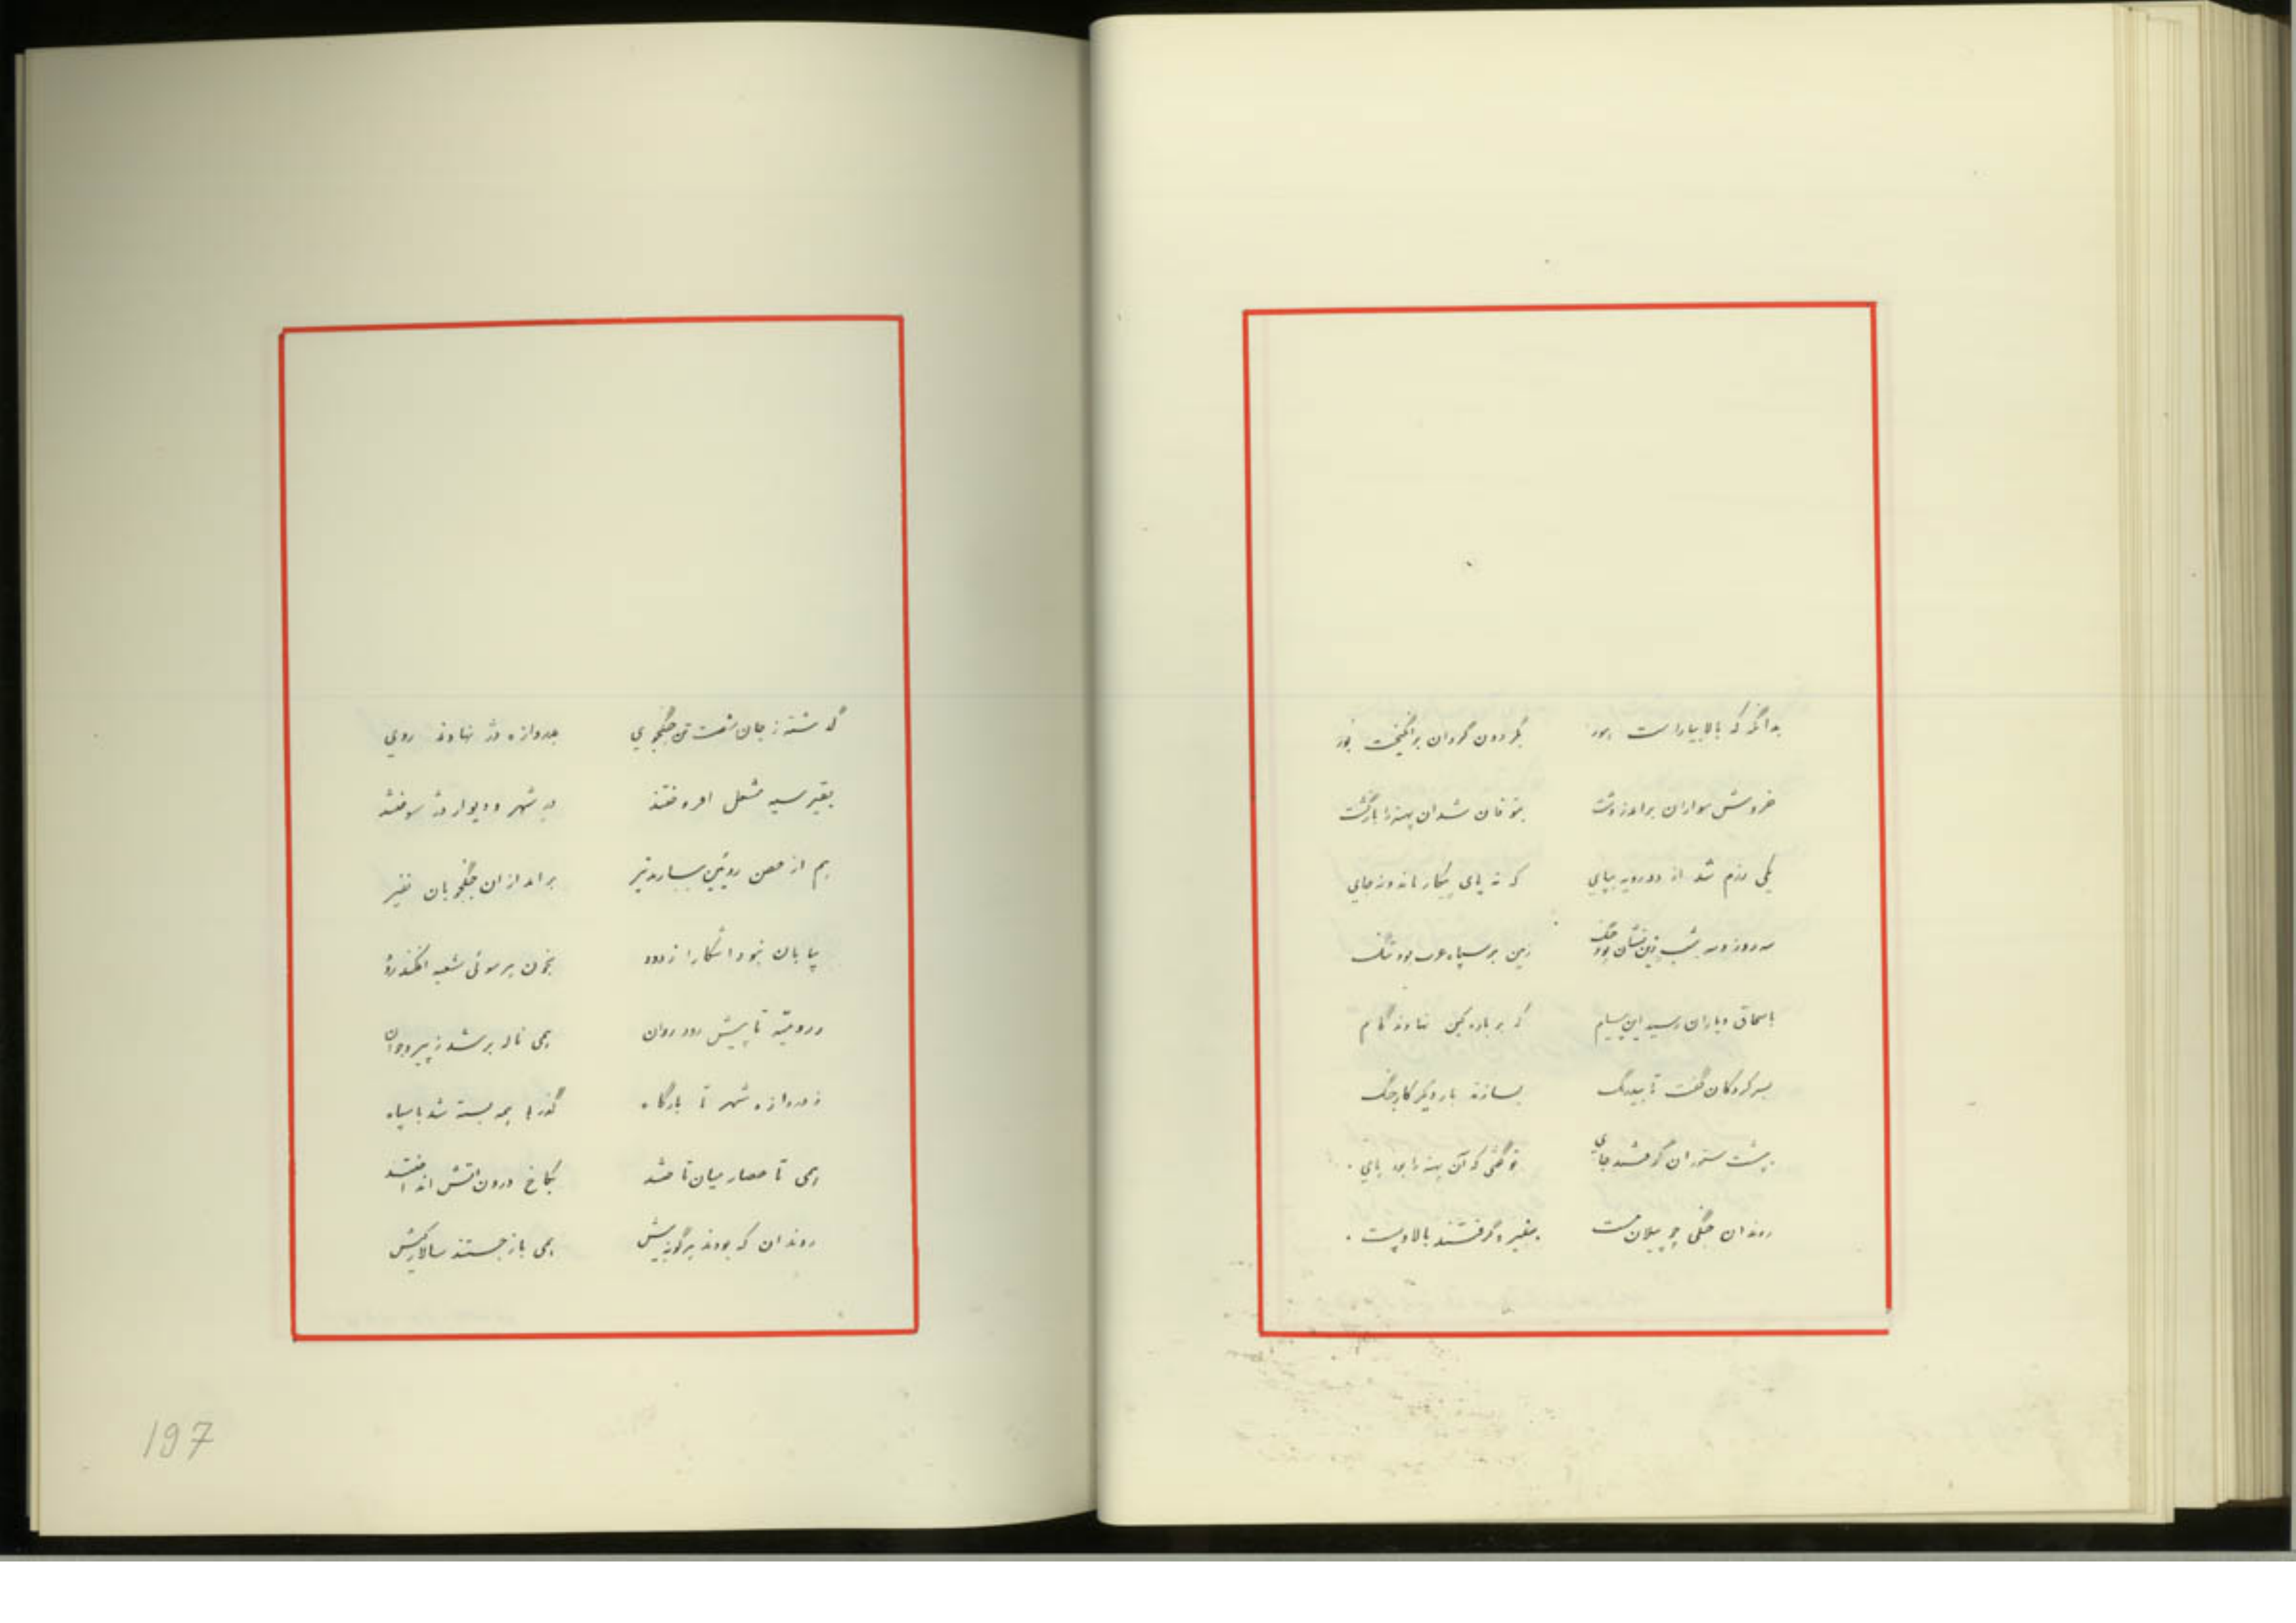 بدانگه که بالا بیاراست هور
بگردون گردان برانگیخت بور
خروش سواران برامد ز دشت
شدان پهنه را بازگشت
یکی رزم شد از دو رویه بپای
که نه پای پیکار ماند و نه جای
سه روز و سه شب زین نشان بود جنگ
زمین بر سپاه عرب بود تنگ
باسحاق و یاران رسید این پیام
که بر باره کین نهاوند گام
بسر کردگان گفت تا بیدرنگ
بسازند بار دیگر کار جنگ
به پشت ستوران گرفتند جای
تو گفتی که آن پهنه را بود پای
روندان جنگی چو پیلان مست
گرفتند بالا و پست
گذشته ز جان شصت تن جنگجوی
بدروازه دژ نهاوند روی
بقیر سیه مشعل افروختند
در شهر و دیوار دژ سوختند
هم از حصن روئین ببارید تیر
برامد ازان جنگجویان نفیر
بیابان نبود اشکارا ز دود
بخون هر سوئی
تا پیش رود روان
همی ناله بر شد ز پیر و جوان
ز دروازه شهر تا بارگاه
گذرها همه بسته شد با سپاه
همی تا حصار میان تاختند
بکاخ درون اتش انداختند
روندان که بودند
همی باز جستند سالار کیش
197